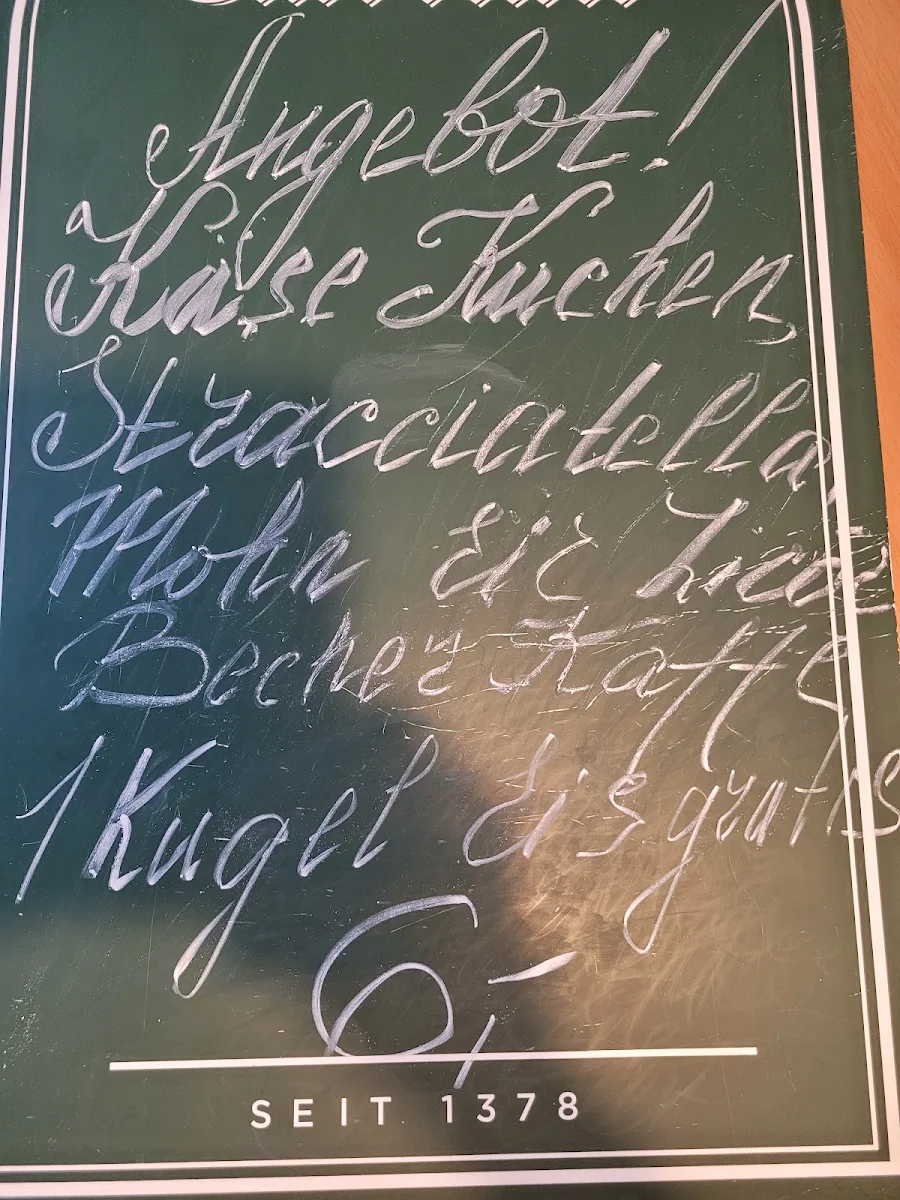 Angebot!
Käse Kuchen,
Stracciatella,
Mohn Eis
Becher Kaffe
1 Kugel Eis gratis
6,-
SEIT 1378